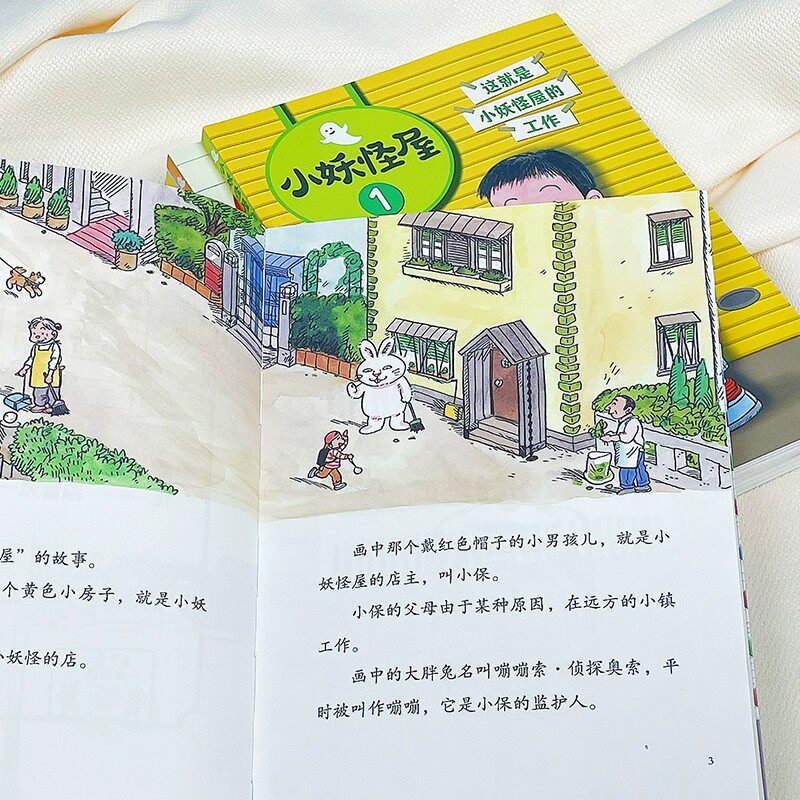 这就是
小妖怪屋的
工作
小妖怪屋
1
屋”的故事。
个黄色小房子，就是小妖
小妖怪的店。
画中那个戴红色帽子的小男孩儿，就是小
妖怪屋的店主，叫小保。
小保的父母由于某种原因，在远方的小镇
工作。
画中的大胖兔名叫嘣嘣索·侦探奥索，平
时被叫作嘣嘣，它是小保的监护人。
3